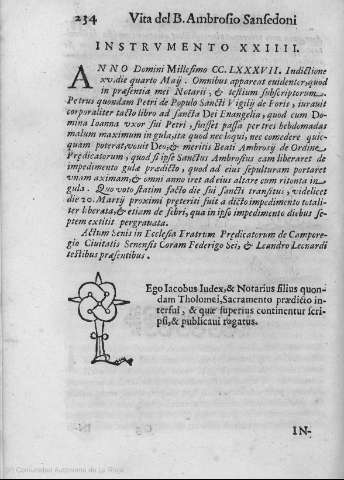 234 Vita del B. Ambrosio Sansedoni
INSTRVMENTO XXIIII.
ANNO Domini Millesimo CC. LXXXVII. Indictione
xv. die quarto Maij. Omnibus appareat euidenter, quod
in præsentia mei Notarij, & testium subscriptorum,
Petrus quondam Petri de Populo Sancti Vigilij de Foris, iurauit
corporaliter tacto libro ad sancta Dei Euangelia, quod cum Do-
mina Ioanna vxor sui Petri, fuisset passa per tres hebdomadas
malum maximum in gula, ita quod nec loqui, nec comedere quic-
quam poterat, vouit Deo, & meritis Beati Ambrosij de Ordine
Prædicatorum, quod si ipse Sanctus Ambrosius eam liberaret de
impedimento gulæ prædicto, quod ad eius sepulturam portaret
vnam aximam, & omni anno iret ad eius altare cum ritonta in
gula. Quo voto statim facto die sui sancti transitus, videlicet
die 20. Martij proximi preteriti fuit a dicto impedimento totali-
ter liberata, & etiam de febri, qua in ipso impedimento diebus se-
ptem extitit pergrauata.
Actum Senis in Ecclesia Fratrum Prædicatorum de Campore-
gio Ciuitatis Senensis Coram Federigo Sei, & Leandro Leonardi
testibus præsentibus.
Ego Iacobus Iudex, & Notarius filius quon-
dam Tholomei, Sacramento prædicto in-
terfui, & quæ superius continentur scri-
psi, & publicaui rogatus.
IN-
© Comunidad Autónoma de La Rioja